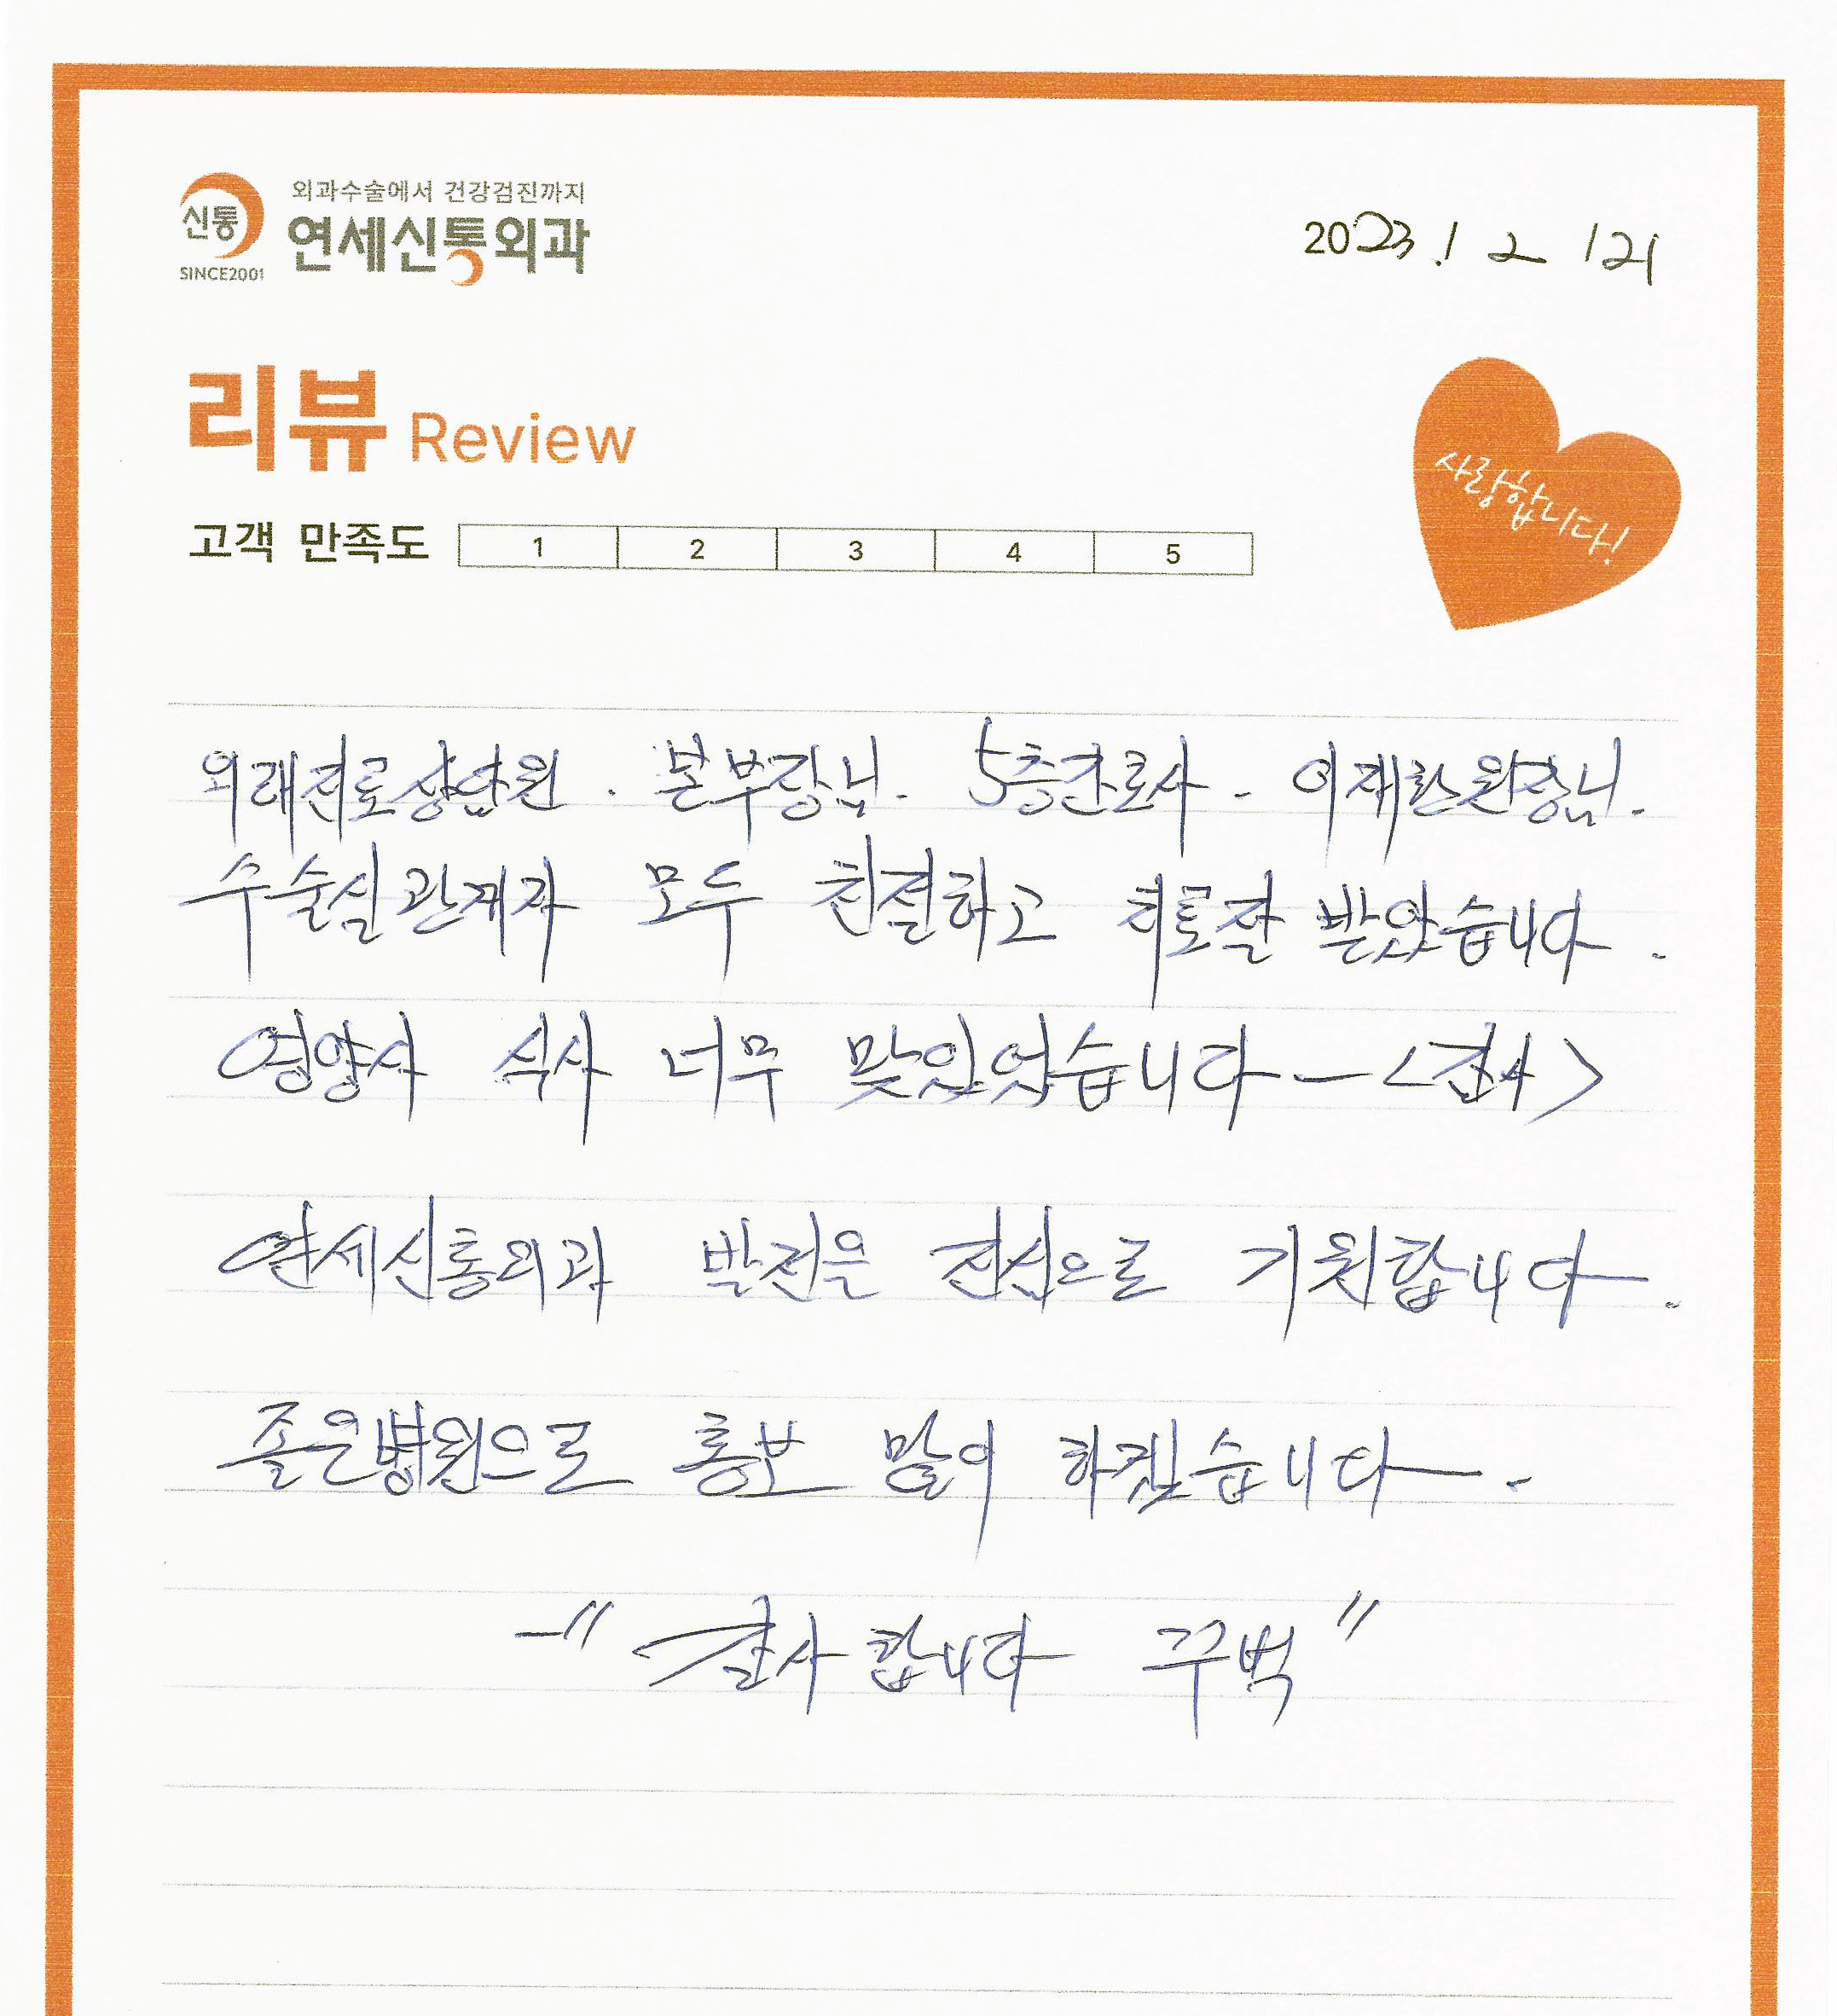 신통
SINCE2001
외과수술에서 건강검진까지
연세신통외과
2023. 1 2 / 21
리뷰 Review
고객 만족도 1 2 3 4 5
사랑합니다!
외래진료상담원 . 본부장님. 5층간호사. 이재원원장님.
수술실관계자 모두 친절하고 치료잘 받았습니다.
영양사 식사 너무 맛있었습니다 - <감사>
연세신통외과 발전은 진심으로 기원합니다.
좋은병원으로 홍보 많이 하겠습니다.
- " 감사합니다 꾸벅 "